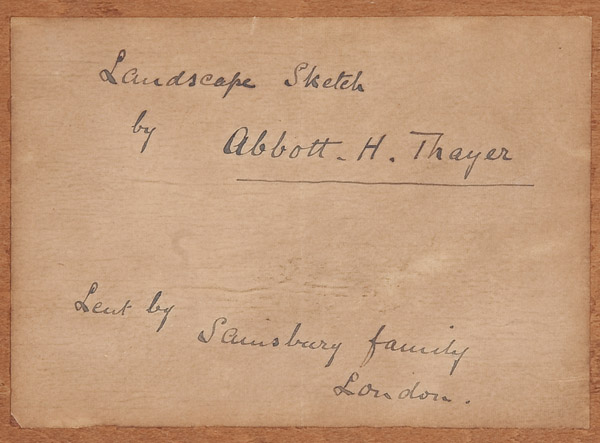 Landscape Sketch
by
Abbott. H. Thayer
Lent by
Sainsbury family
London.